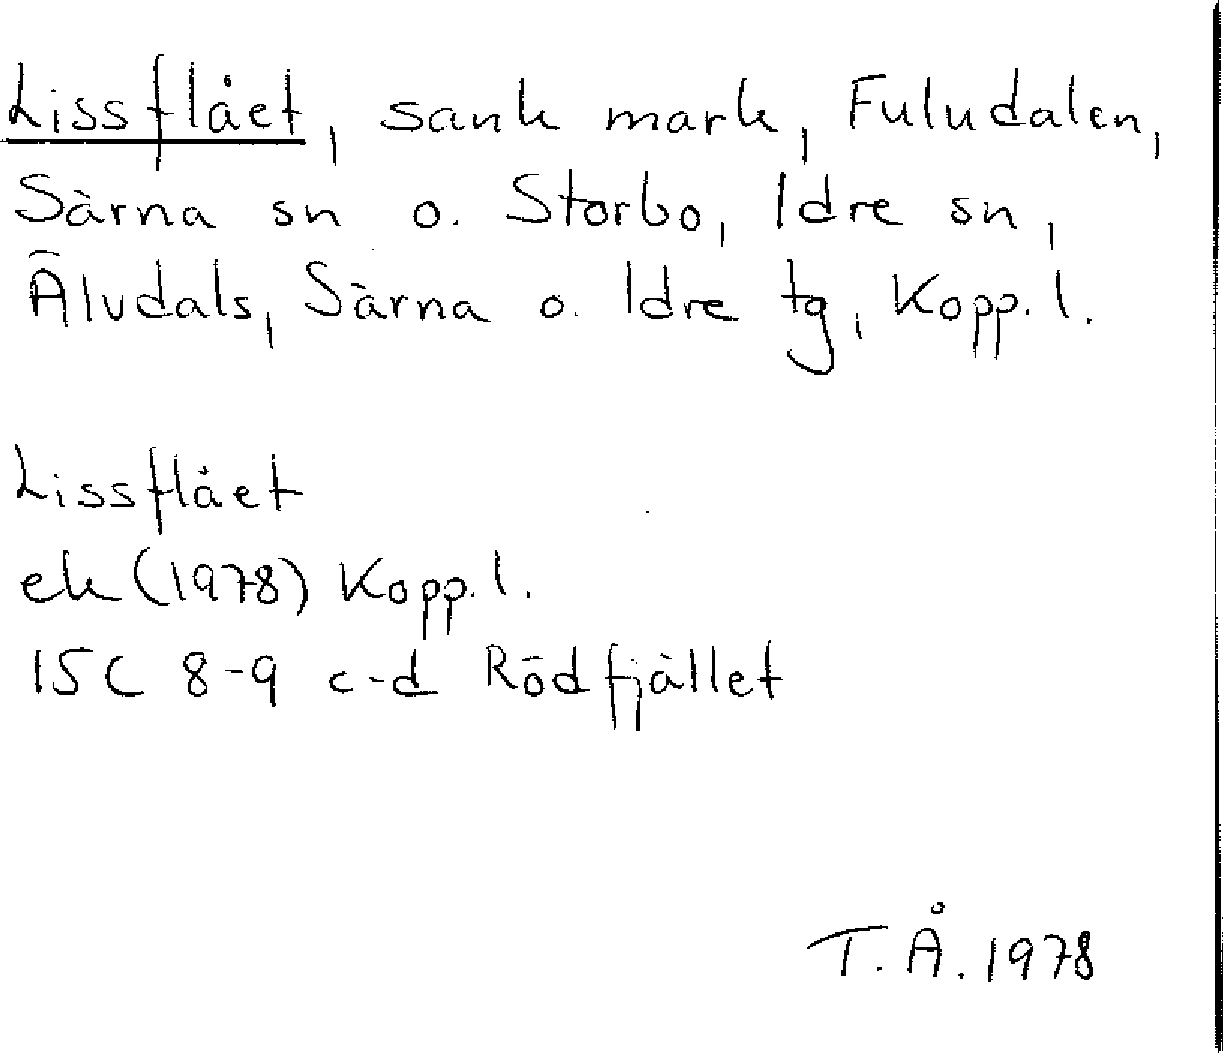 Lissflået, sank mark, Fuludalen,
Särna sn o. Storbo, Idre sn,
Älvdals, Särna o. Idre tg, Kopp. l.
Lissflået
ek (1978) Kopp. l.
15C 8-9 c-d Rödfjället
T. Å. 1978